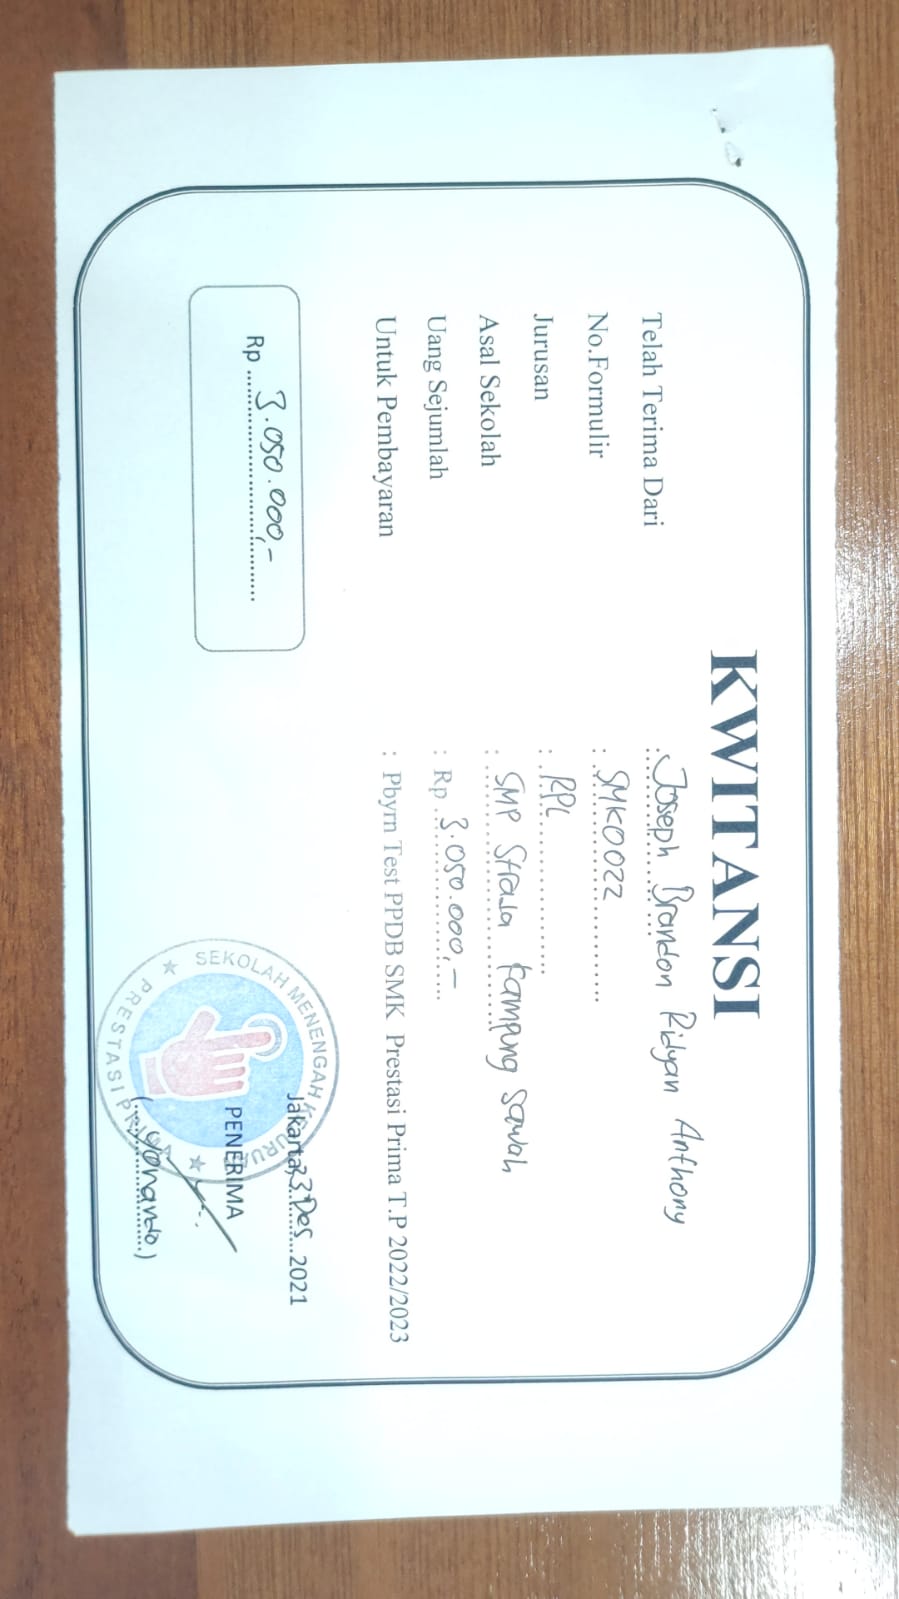 KWITANSI
Telah Terima Dari : Joseph Brandon Ridyan Anthony
No.Formulir : SMK0022
Jurusan : RPL
Asal Sekolah : SMP Strada Kampung Sawah
Uang Sejumlah : Rp 3.050.000,-
Untuk Pembayaran : Pbyrn Test PPDB SMK Prestasi Prima T.P 2022/2023
Rp 3.050.000,-
Jakarta, 23 Des 2021
PENERIMA
(Yonando.)
SEKOLAH MENENGAH KEJURUAN
PRESTASI PRIMA